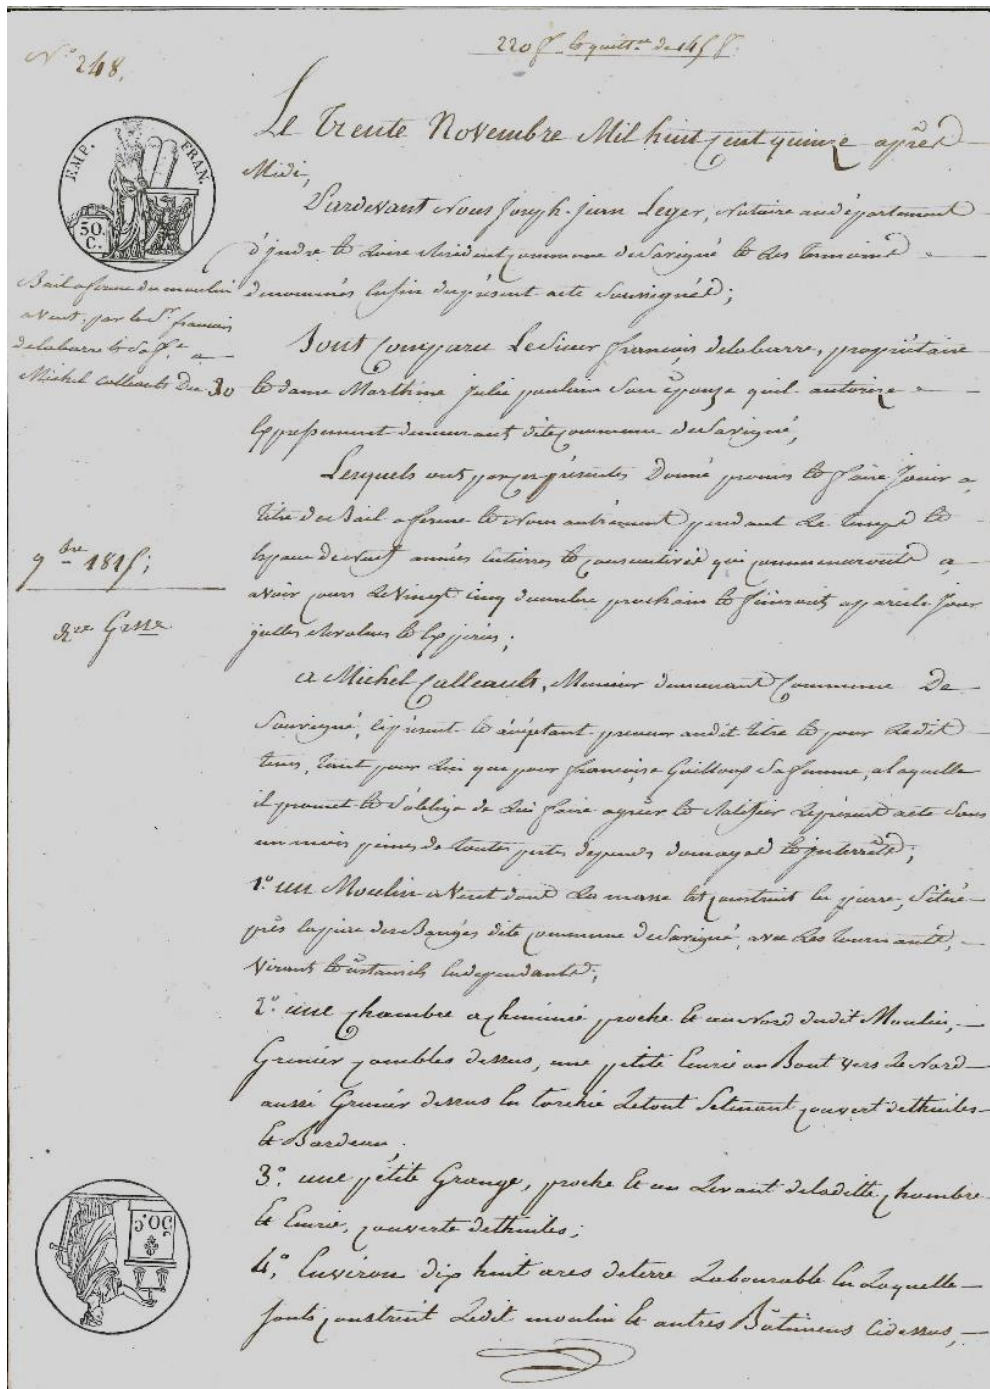 220 f. et quitt.ce de 145 f.
N.º 248.
EMP. FRAN.
50. C.
Bail a ferme du moulin
a Vent, par le S.r francois
delabarre et sa f.e a
Michel Calleault Du 30
9.bre 1815;
Le Trente Novembre Mil huit Cent quinze après
Midi,
Pardevant Nous Joseph-Jean Leger, Notaire au département
d'Jndre et Loire Résident commune de Savigné et Les Temoins
denommés Enfin du présent acte Soussignés;
Sont Comparu Le Sieur françois delabarre, propriétaire
et dame Marthine Julie poulain Son épouze quil autorize
Expressement demeurants dite commune de Savigné,
Lesquels ont par ces présentes Donné promis et faire Jouir a
titre de Bail a ferme et Non autrement pendant Le Temps et
Espace de Neuf années Entierres et consecutives qui commenceronts a
avoir cours Le Vingt cinq decembre prochain et finironts a pareils Jour
Jcelles Revolues et Expirées;
a Michel Calleault, Meunier demeurant Commune De
Souvigné, cy présent et acceptant preneur audit titre et pour Ledit
tems, tant pour Lui que pour françoise Guilloux Sa femme, a laquelle
il promet et S'oblige de Lui faire agréer et Ratifier Le présent acte Sous
un mois peines de toutes pertes depends domages et Jnterrêts;
1.º un Moulin a Vent dont La masse Est construit En pierre, Situé
près la de Savigné, avec Les tournants,
Virants et Ustancils En dependants;
2.º une chambre a chiminé proche Et au Nord dudit Moulin,
Grenier combles dessus, une petite Eurie au Bout vers Le Nord
aussi Grenier dessus En torchie Le tout Se tenant couvert dethuiles
Et Bardeau.
3.º une pétite Grange, proche Et au Levant deladitte chambre
Et Eurie, couverte dethuiles;
4.º Environ dix huit ares deterre Labourable En Laquelle
Sonts construit Ledit moulin Et autres Bâtimens Cidessus,
50. C.